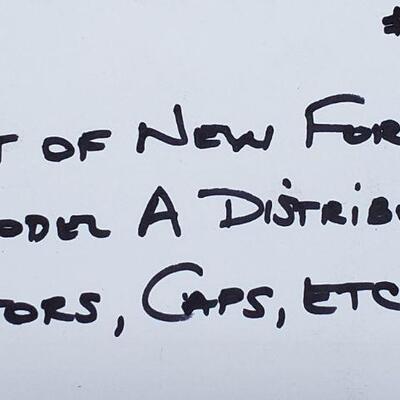 #
T OF NEW FOR
ODEL A DISTRIBU
TORS, CAPS, ETC